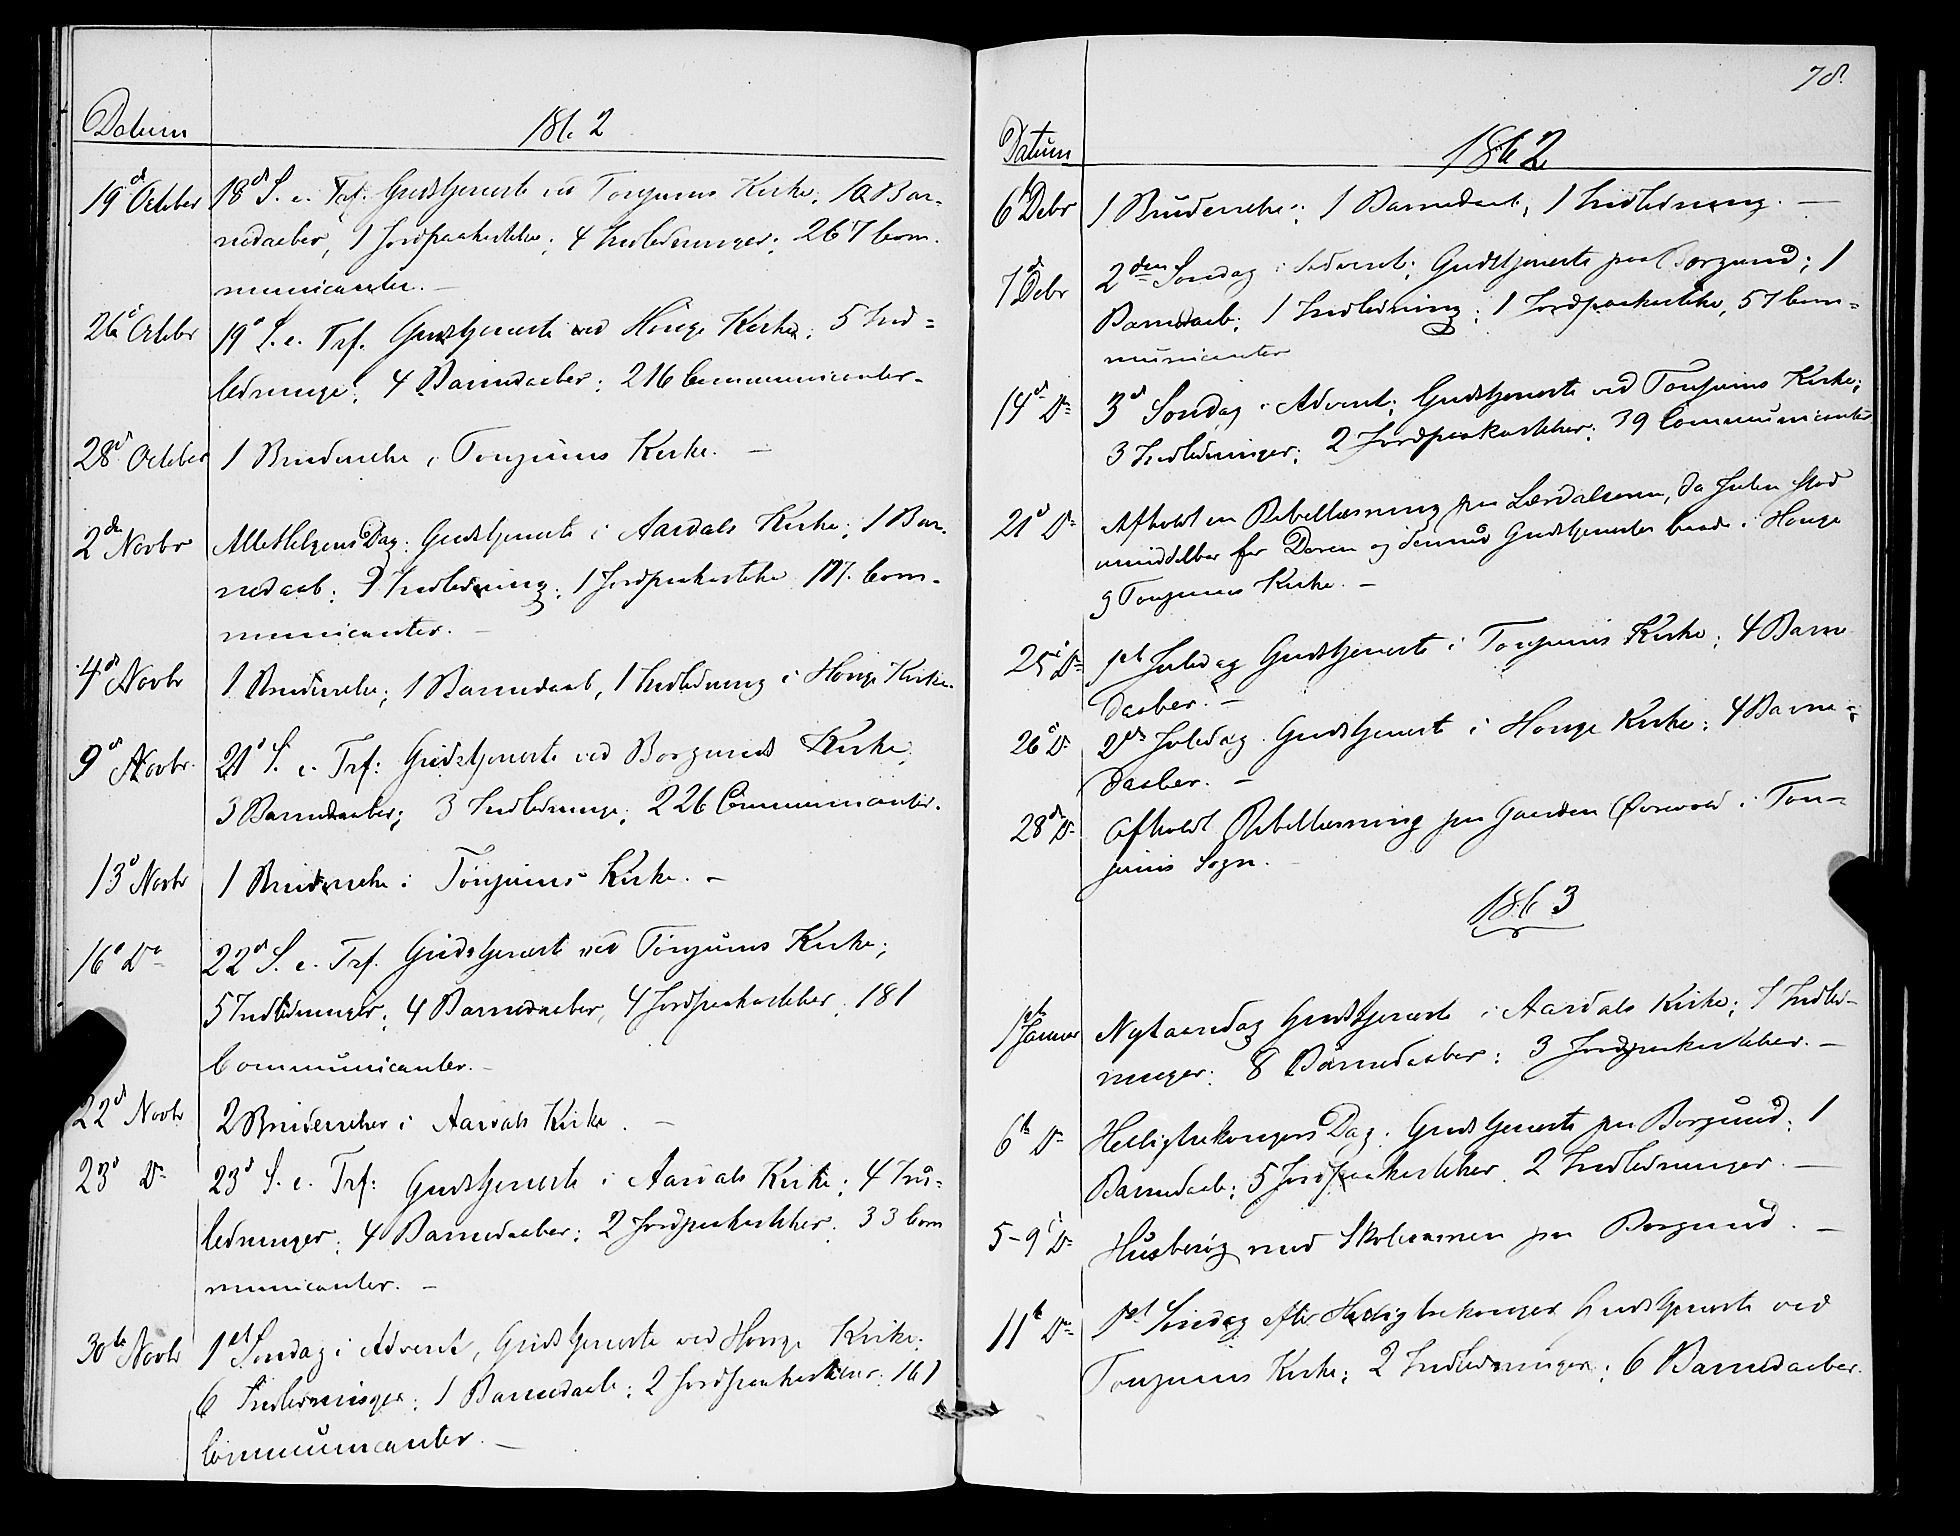 Datum 1862
19d October 18d S. e. Trf. Gudstjeneste ved Tonjums Kirke; 10 Bar-
nedaaber, 1 Jordpaakastelse; 4 Indledninger; 267 Com-
municanter. —
26d Octbr 19d S. e. Trf. Gudstjeneste ved Hauge Kirke; 5 Ind=
ledninger; 4 Barnedaaber; 216 Communicanter.
28d October 1 Brudevielse i Tonjums Kirke. —
2den Novbr AlleHelgensDag: Gudstjeneste i Aardals Kirke; 1 Bar-
nedaab; Indledning; 1 Jordpaakastelse 117. Com-
municanter. —
4d Novbr 1 Brudevielse; 1 Barnedaab, 1 Indledning i Hauge Kirke.
9d Novbr. 21d S. e. Trf: Gudstjeneste ved Borgunds Kirke;
3 Barnedaaber; 3 Indledninge; 226 Communicanter.
13d Novbr 1 Brudevielse i Tonjums Kirke. —
16d Do 22d S. e. Trf. Gudstjeneste ved Tonjums Kirke;
5 Indledninger; 4 Barnedaaber, 4 Jordpaakastelser, 181
Communicanter. —
22d Novbr 2 Brudevielser i Aardals Kirke. —
23d Do 23d S. e. Trf: Gudstjeneste i Aardals Kirke; 4 Ind-
ledninger; 4 Barnedaaber; 2 Jordpaakastelser; 33 Com
municanter. —
30te Novbr 1ste Søndag i Advent, Gudstjeneste ved Hauge Kirke;
6 Indledninger; 1 Barnedaab; 2 Jordpaakastelser; 161
Communicanter. —
78.
Datum 1862
6d Debr 1 Brudevielse; 1 Barnedaab; 1 Indledning. —
7d Debr 2den Søndag i Advent; Gudstjeneste paa Borgund; 1
Barnedaab; 1 Indledning; 1 Jordpaakastelse, 57 Com=
municanter
14d Do 3d Søndag i Advent; Gudstjeneste ved Tonjums Kirke;
3 Indledninger; 2 Jordpaakastelser; 39 Communicanter
21d Do Afholdt en Bibellæsning paa Lærdalsøren, da Julen stod
umiddelbar for Døren og dennud Gudstjenester baade i Hauge
og Tonjums Kirke. —
25d Do 1ste Juledag Gudstjeneste i Tonjums Kirke; 4 Barne
daaber. —
26d Do 2den Juledag. Gudstjenest i Hauge Kirke; 4 Barne=
daaber. —
28d Do Afholdt Bibellæsning paa Gaarden i Ton-
jums Sogn. —
1863
1ste Januar Nytaarsdag Gudstjeneste i Aardals Kirke; 7 Indled-
ninger; 8 Barnedaaber; 3 Jordpaakastelser. —
6te Do HelligtrekongersDag: Gudstjeneste paa Borgund; 1
Barnedaab; 5 Jordpaakastelser, 2 Indledninger. —
5-9d Do Husbesøg med Skoleexamen paa Borgund. —
11te Do 1ste Søndag efter Helligtrekonger Gudstjeneste ved
Tonjums Kirke; 2 Indledninger; 6 Barnedaaber.